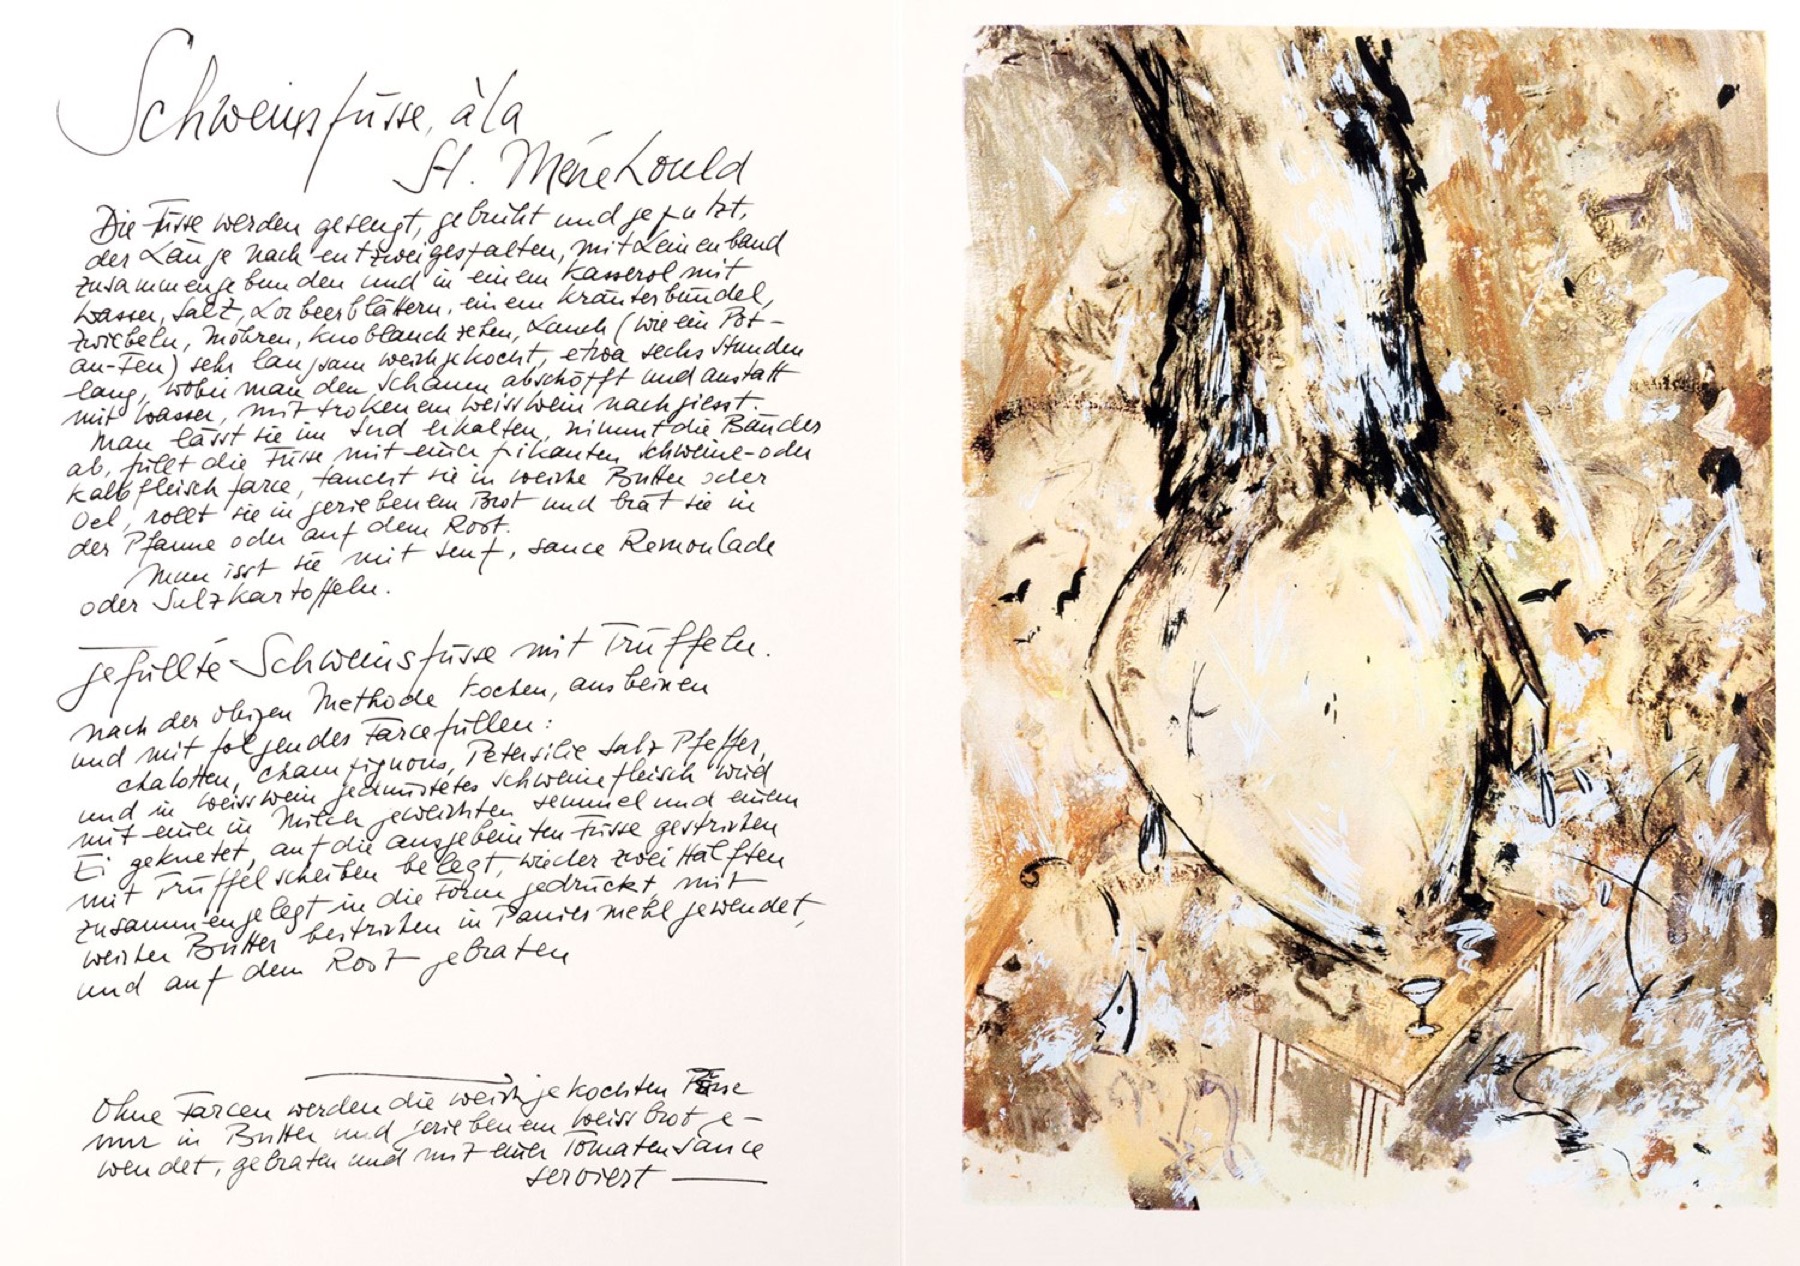 Schweinsfüsse, à la
St. Ménehould
Die Füsse werden gesengt, gebrüht und geputzt,
der Länge nach entzweigespalten, mit Leinenband
zusammengebunden und in einem Kasserol mit
Wasser, Salz, Lorbeerblättern, einem Kräuterbündel,
Zwiebeln, Möhren, Knoblauchzehen, Lauch (wie ein Pot-
au-Feu) sehr langsam weichgekocht, etwa sechs Stunden
lang, wobei man den Schaum abschöpft und anstatt
mit Wasser, mit trokenem Weisswein nachgiesst.
Man lässt sie im Sud erkalten, nimmt die Bänder
ab, füllt die Füsse mit einer pikanten Schweine- oder
Kalbfleischfarce, taucht sie in weiche Butter oder
Oel, rollt sie in geriebenem Brot und brät sie in
der Pfanne oder auf dem Rost.
Man isst sie mit Senf, Sauce Remoulade
oder Salzkartoffeln.
gefüllte Schweinsfüsse mit Trüffeln.
nach der obigen Methode kochen, ausbeinen
und mit folgender Farce füllen:
Chalotten, Champignons, Petersilie Salz Pfeffer,
und in Weisswein gedünstetes Schweinefleisch wird
mit einer in Milch geweichten Semmel und einem
Ei geknetet, auf die ausgebeinten Füsse gestrichen
mit Trüffelscheiben belegt, wieder zwei Hälften
zusammengelegt in die Form gedrückt mit
weicher Butter bestrichen in Paniermehl gewendet,
und auf dem Rost gebraten
Ohne Farcen werden die weichgekochten Füsse
nur in Butter und geriebenem Weissbrot ge-
wendet, gebraten und mit einer Tomatensauce
serviert